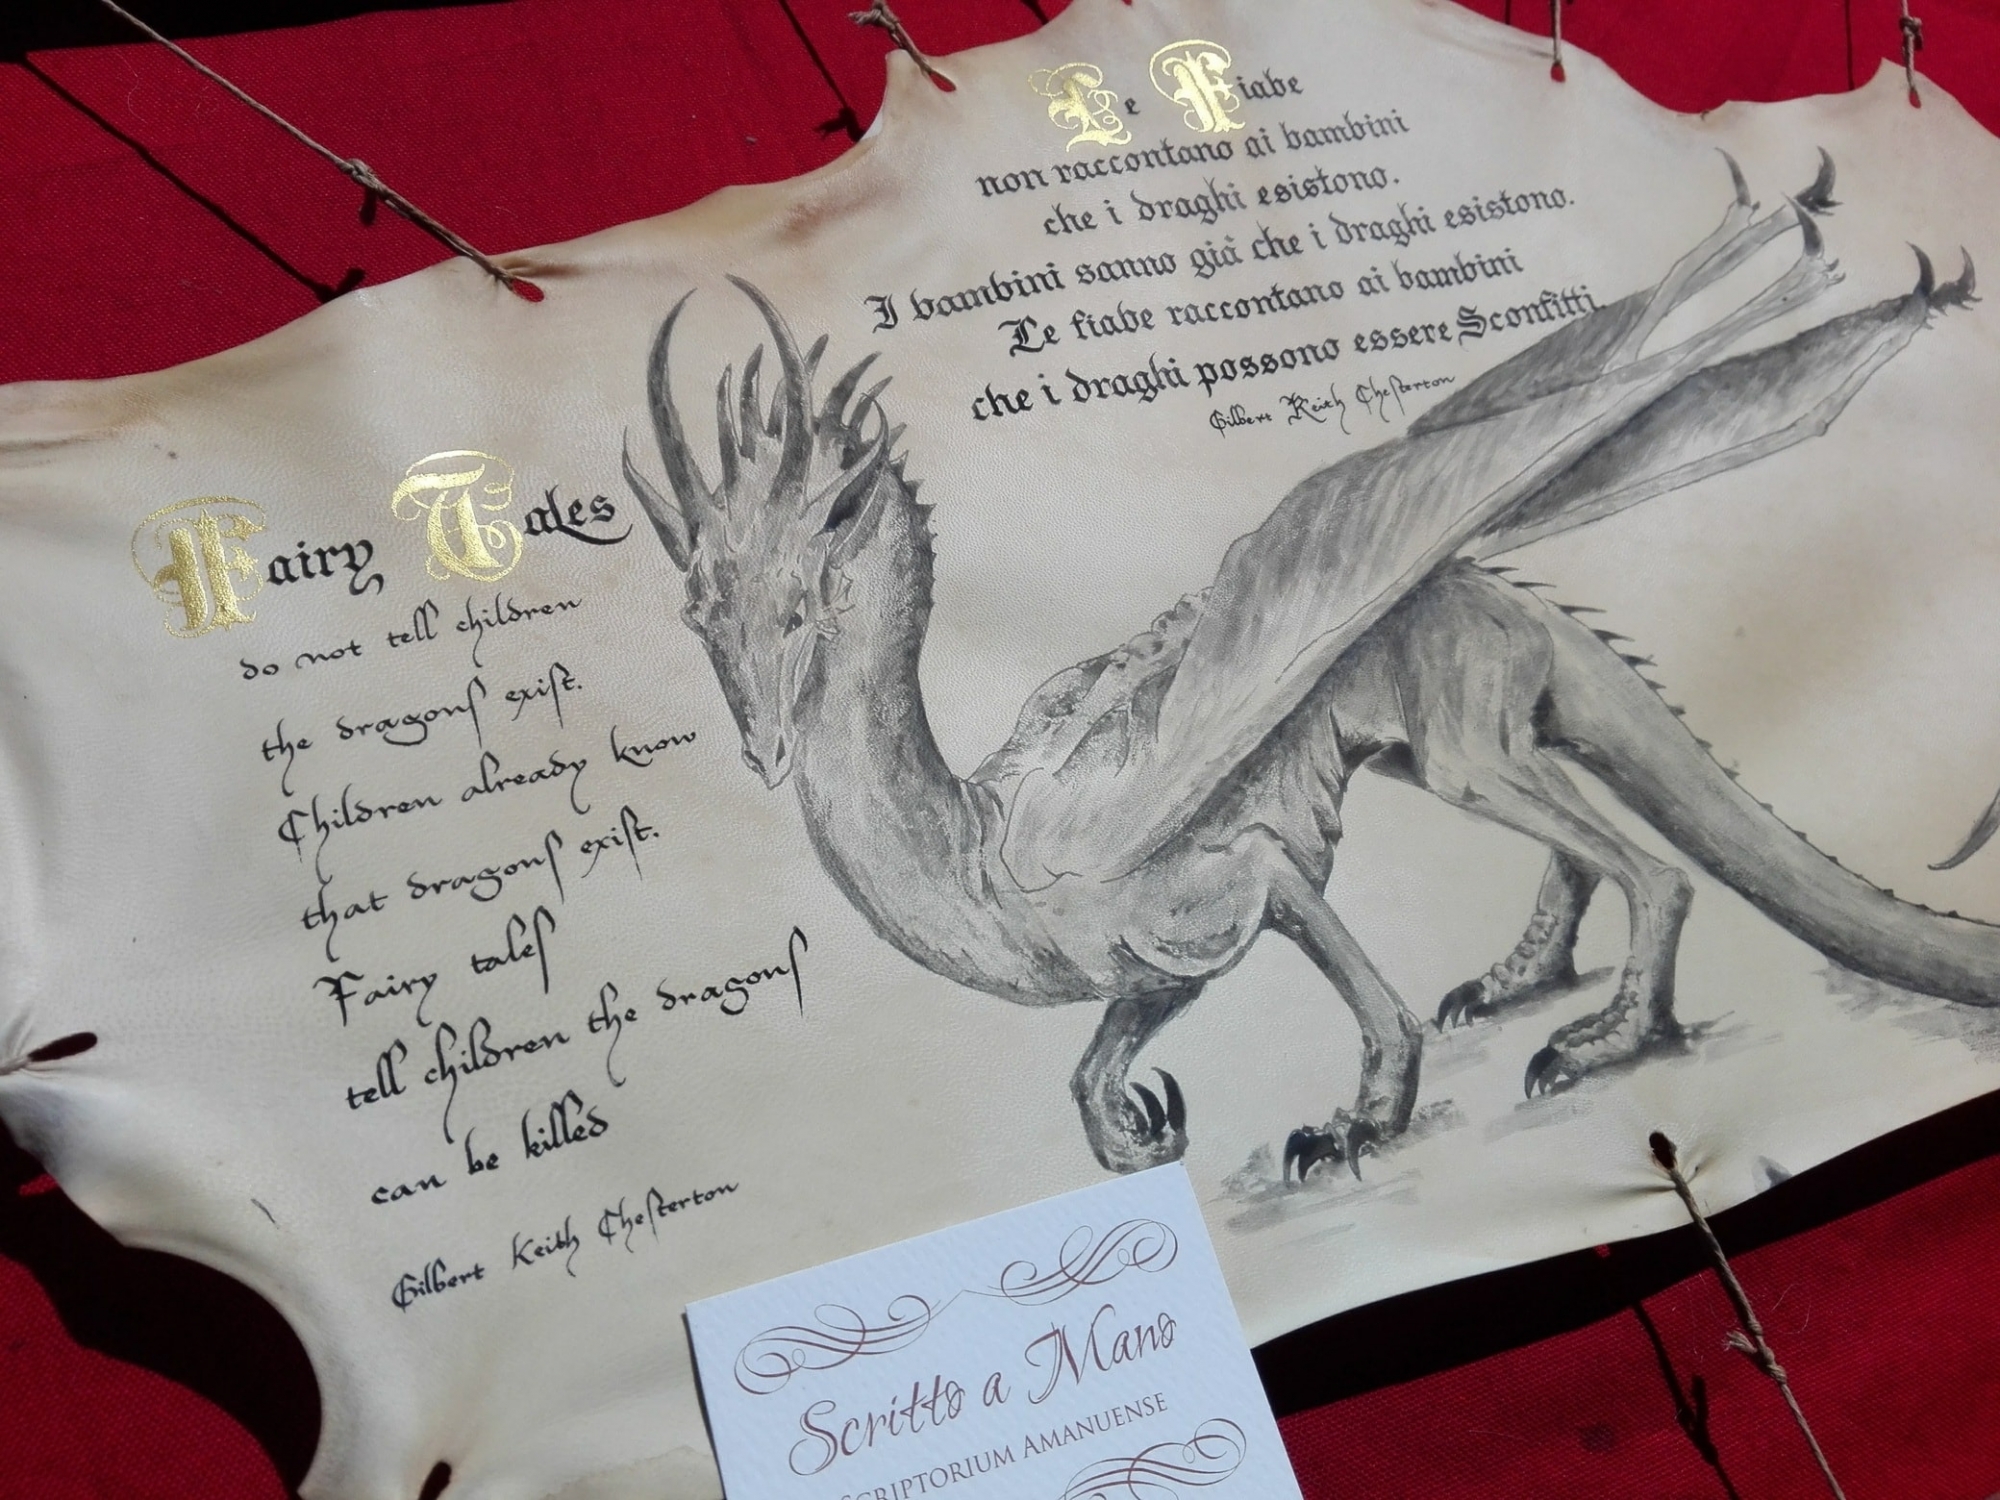 Le Fiabe
non raccontano ai bambini
che i draghi esistono.
I bambini sanno già che i draghi esistono.
Le fiabe raccontano ai bambini
che i draghi possono essere Sconfitti.
Gilbert Keith Chesterton
Fairy Tales
do not tell children
the dragons exist.
Children already know
that dragons exist.
Fairy tales
tell children the dragons
can be killed
Gilbert Keith Chesterton
Scritto a Mano
SCRIPTORIUM AMANUENSE